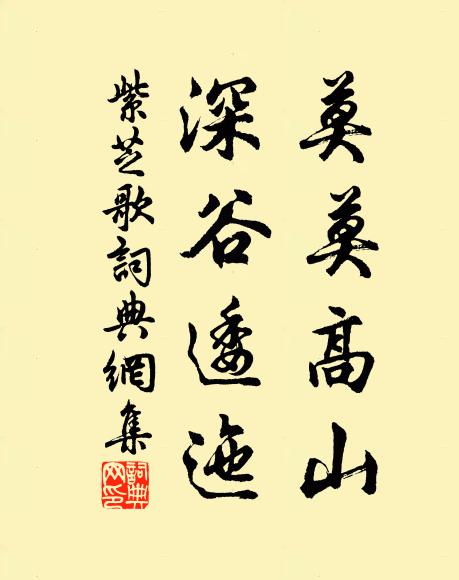 莫莫高山
深谷逶迤
紫芝歌詞典網集
詞典网印